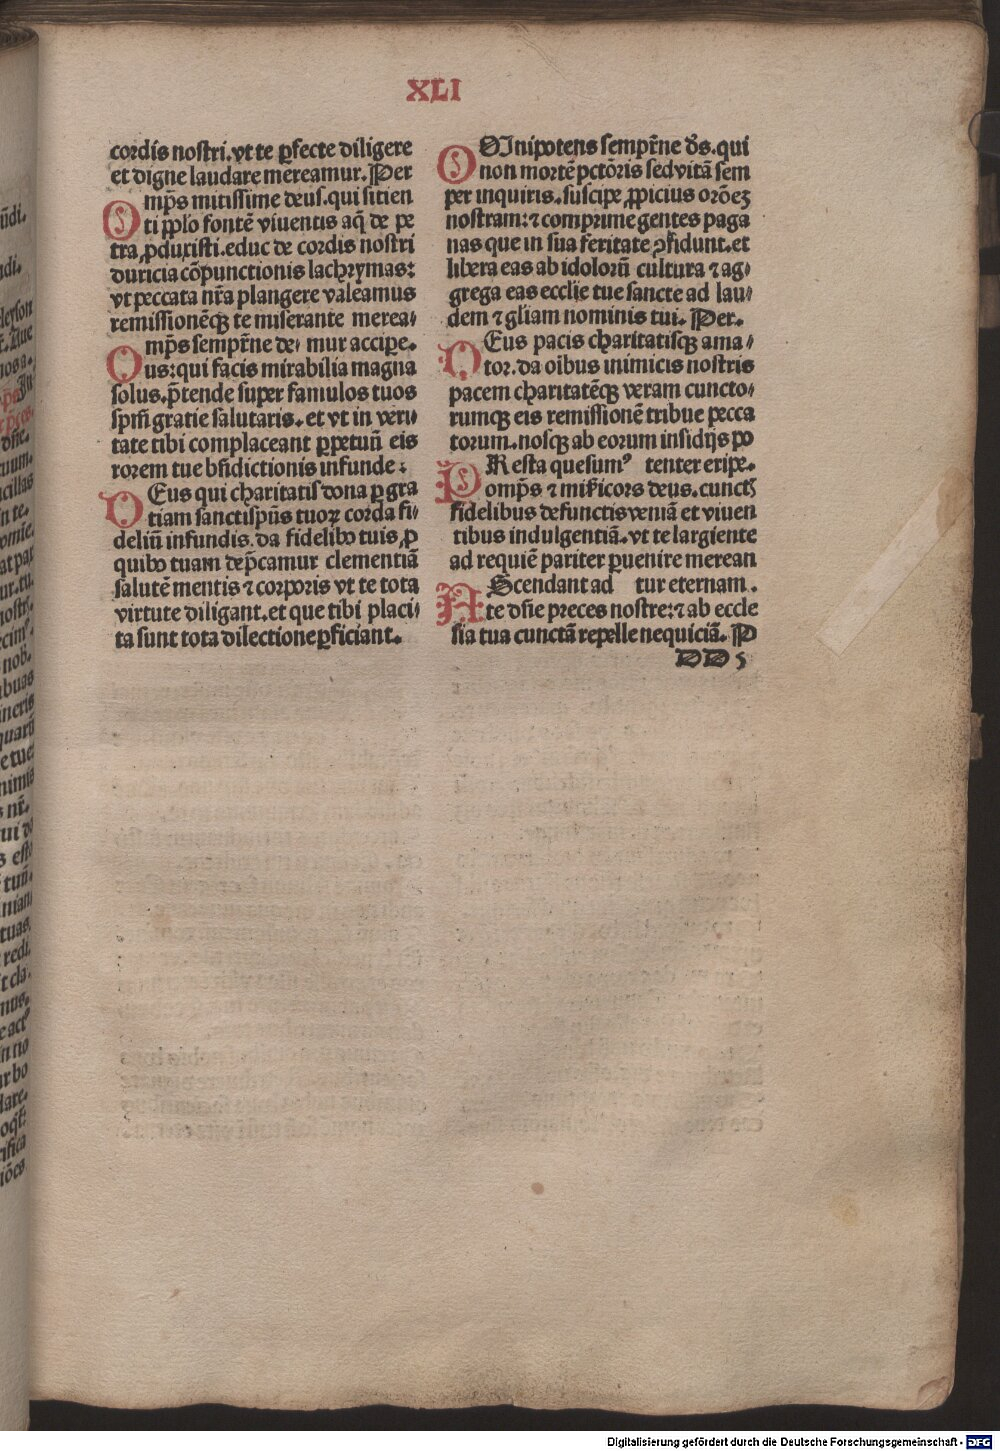 XLI
cordis nostri. vt te ꝑfecte diligere
et digne laudare mereamur. Per
Omp̄s mitissime deus. qui sitien
ti ꝓplo fontē viuentis aq̄ de pe
tra ꝓduxisti. educ de cordis nostri
duricia cōpunctionis lachrymas:
vt peccata nr̄a plangere valeamus
remissionēqꝫ te miserante merea⸗
mp̄s sempr̄ne de⸗ mur accipe.
Ous: qui facis mirabilia magna
solus. p̄tende super famulos tuos
spm̄ gratie salutaris. et vt in veri⸗
tate tibi complaceant ꝑpetuū eis
rorem tue bn̄dictionis infunde:
DEus qui charitatis dona ꝑ gra
tiam sanctispūs tuoꝝ corda fi⸗
deliū infundis. da fidelibꝰ tuis, ꝓ
quibꝰ tuam dep̄camur clementiā
salutē mentis ⁊ corporis vt te tota
virtute diligant. et que tibi placi⸗
ta sunt tota dilectione ꝑficiant.
OMnipotens sempr̄ne ds̄. qui
non mortē pctōris sed vitā sem
per inquiris. suscipe ꝓpicius orōeꝫ
nostram: ⁊ comprime gentes paga
nas que in sua feritate ꝯfidunt. et
libera eas ab idolorū cultura ⁊ ag⸗
grega eas ecclie tue sancte ad lau⸗
dem ⁊ gliam nominis tui. Per.
DEus pacis charitatisqꝫ ama⸗
tor. da oībus inimicis nostris
pacem charitatēqꝫ veram cuncto⸗
rumqꝫ eis remissionē tribue pecca
torum. nosqꝫ ab eorum insidijs po
PResta quesumꝰ tenter eripe.
omp̄s ⁊ mīricors deus. cunctꝭ
fidelibus defunctis veniā et viuen
tibus indulgentiā. vt te largiente
ad requiē pariter ꝑuenire merean
AScendant ad tur eternam.
te dn̄e preces nostre: ⁊ ab eccle
sia tua cunctā repelle nequiciā. P
DD 5
Digitalisierung gefördert durch die Deutsche Forschungsgemeinschaft - DFG